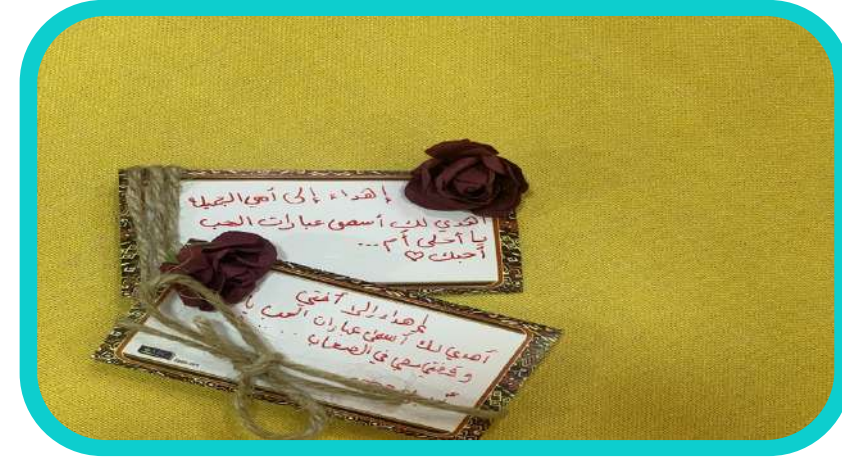 إهداء إلى أمي الجميلة
أهدي لك أسمى عبارات الحب
يا أحلى أم ...
أحبك ♡
إهداء إلى أختي
أهدي لك أسمى عبارات الحب يا
في الصعاب